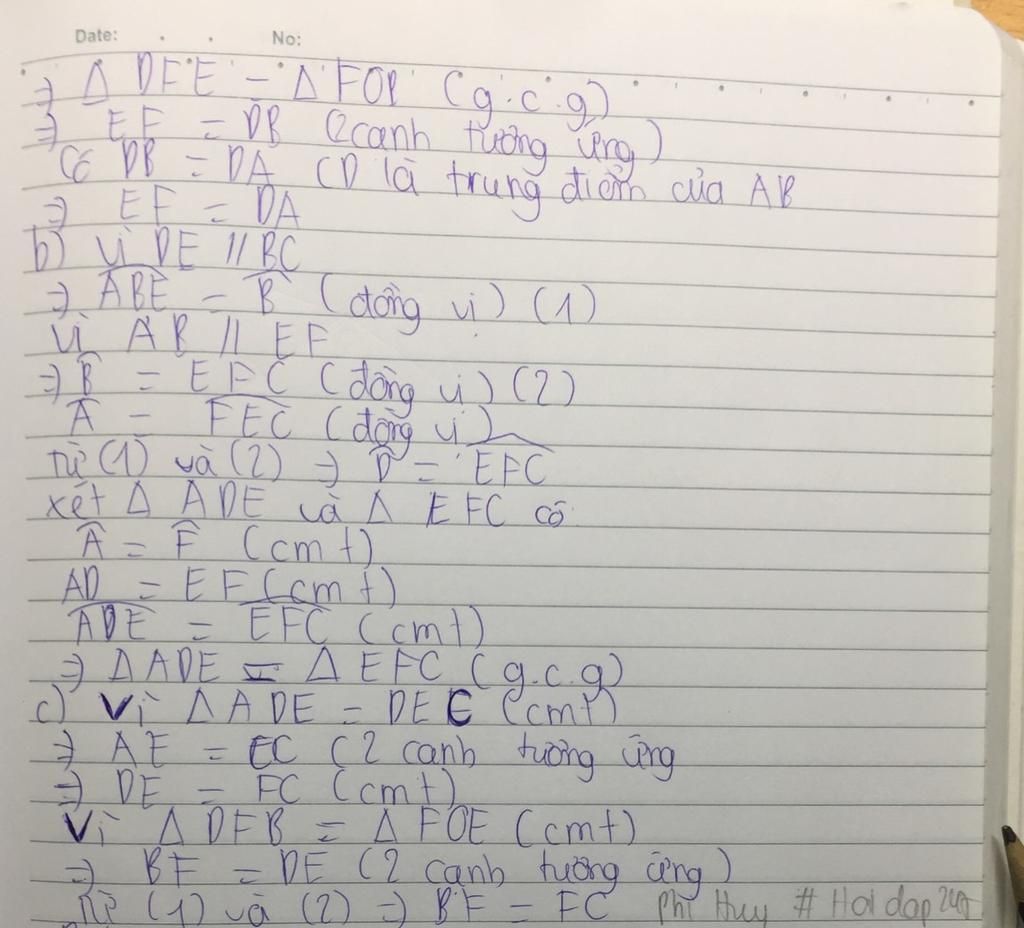 Date: . . No:
⇒ Δ DFE = Δ FOB (g.c.g)
⇒ EF = DB (2 canh tương ứng)
Có DB = DA (D là trung điểm của AB
⇒ EF = DA
b) Vì DE // BC
⇒ ABE = B (đồng vị) (1)
Vì AB // EF
⇒ B = EFC (đồng vị) (2)
A = FEC (đồng vị)
Từ (1) và (2) ⇒ D = EFC
xét Δ ADE và Δ EFC có
A = F (cmt)
AD = EF (cmt)
ADE = EFC (cmt)
⇒ Δ ADE = Δ EFC (g.c.g)
c) Vì Δ ADE = DEC (cmt)
⇒ AE = EC (2 canh tương ứng
⇒ DE = FC (cmt)
Vì Δ DFB = Δ FOE (cmt)
⇒ BF = DE (2 canh tương ứng)
Từ (1) và (2) ⇒ BF = FC Phi Huy # Hoidap247